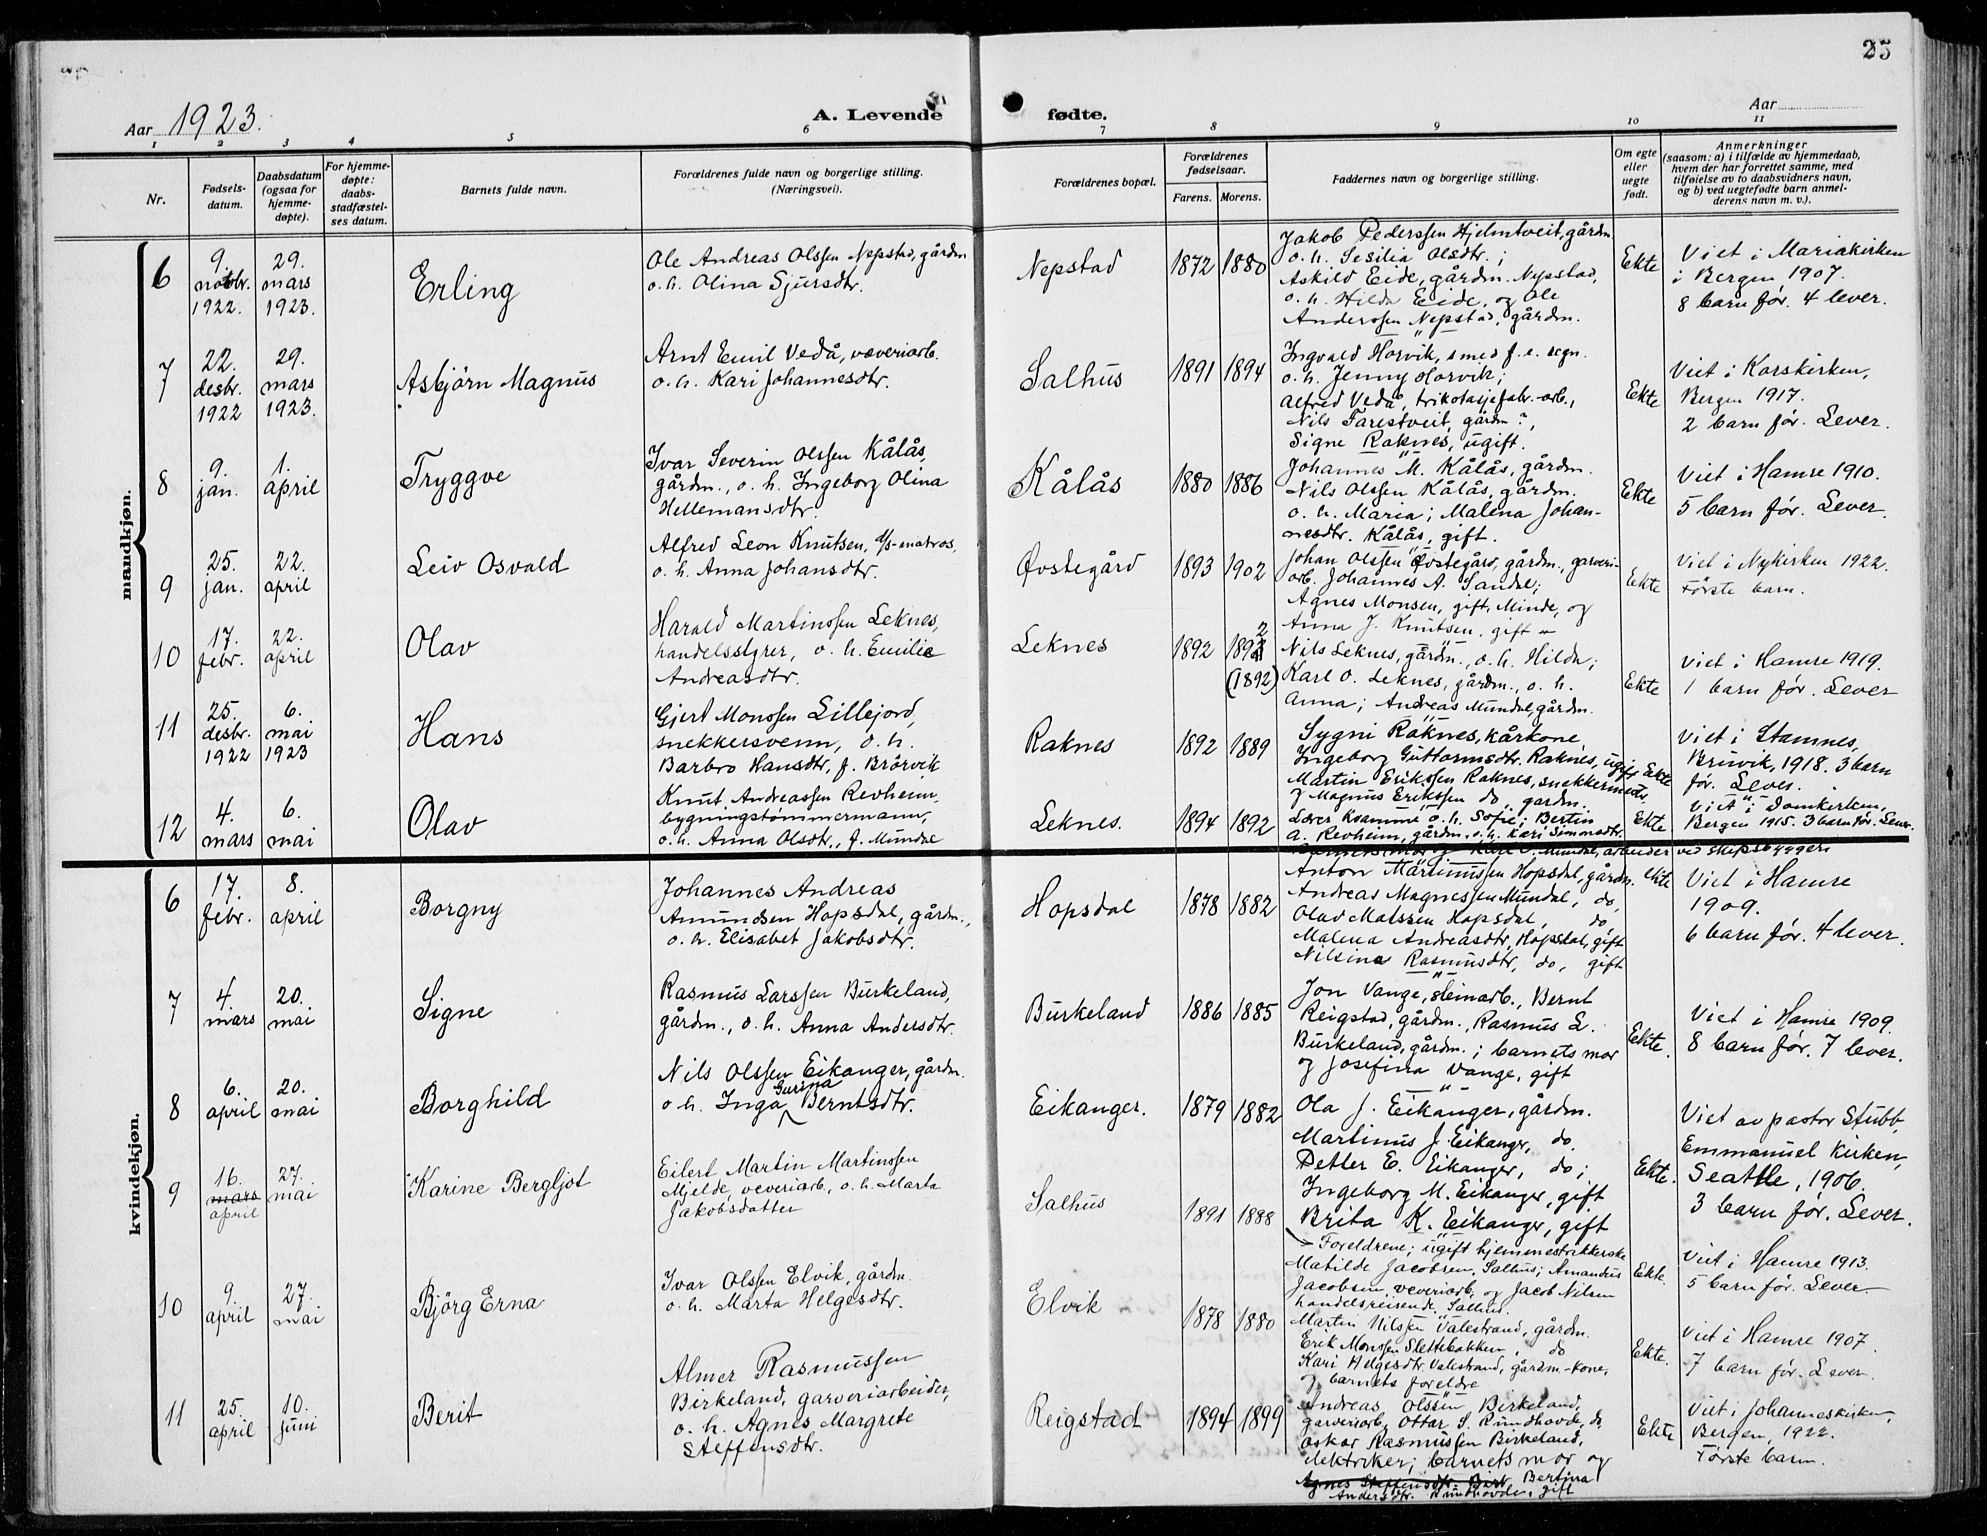 25
Aar 1923.
A. Levende fødte.
Aar
1 2 3 4 5 6 7 8 9 10 11
Nr.
Fødsels-
datum.
Daabsdatum
(ogsaa for
hjemme-
døpte).
For hjemme-
døpte:
daabs-
stadfæstel-
ses datum.
Barnets fulde navn.
Forældrenes fulde navn og borgerlige stilling.
(Næringsvei).
Forældrenes bopæl.
Forældrenes
fødselsaar.
Farens. Morens.
Faddernes navn og borgerlige stilling.
Om egte
eller
uegte
født.
Anmerkninger
(saasom: a) i tilfælde av hjemmedaab,
hvem der har forrettet samme, med
tilføielse av to daabsvidners navn,
og b) ved uegtefødte barn anmel-
derens navn m. v.).
mandkjøn.
6
9.
novbr.
1922.
29.
mars
1923.
Erling
Ole Andreas Olssen Nepstad, gårdm
o. h. Olina Sjursdtr.
Nepstad
1872 1880
Jakob Pederssen Hjelmtveit, gårdm
o. h. Sesilia Olsdtr. ;
Askild Eide, gårdm. Nepstad,
o. h. Hilda Eide, og Ole
Anderssen Nepstad, gårdm.
Ekte
Viet i Mariakirken
i Bergen 1907.
8 barn før. 4 lever.
7
22.
desbr.
1922
29.
mars
1923.
Asbjørn Magnus
Arnt Emil Vedå, væveriarb.
o. h. Kari Johannesdtr.
Salhus
1891 1894
Ingvald Horvik, smed f. e. regn.
o. h. Jenny Horvik;
Alfred Vedå, trikotasjefabr.-arb.,
Nils Farestveit, gårdm ?,
Signe Raknes, ugift.
Ekte
Viet i Korskirken,
Bergen 1917.
2 barn før. Lever.
8
9.
jan.
1.
april
Tryggve
Ivar Severin Olssen Kålås,
gårdm., o. h. Ingeborg Olina
Hellemansdtr.
Kålås
1880 1886
Johannes M. Kålås, gårdm.
Nils Olssen Kålås, gårdm.
o. h. Maria; Malena Johan-
nesdtr. Kålås, gift.
Ekte
Viet i Hamre 1910.
5 barn før. Lever.
9
25.
jan.
22.
april
Leiv Osvald
Alfred Leon Knutsen, d/s-matros,
o. h. Anna Johansdtr.
Øvstegård
1893 1902
Johan Olssen Øvstegård, gårdm., garveri-
arb. Johannes A. Sandre;
Agnes Monsen, gift, Minde, og
Anna J. Knutsen, gift
Ekte
Viet i Nykirken 1922.
Første barn.
10
17.
febr.
22.
april
Olav
Harald Martinssen Leknes,
handelsstyrer, o. h. Emilie
Andreasdtr.
Leknes
1892 1892
(1892)
Nils Leknes, gårdm., o. h. Hilda;
Karl O. Leknes, gårdm., o. h.
Anna; Andreas Mundal, gårdm.
Ekte
Viet i Hamre 1919.
1 barn før. Lever
11
25.
desbr.
1922
6.
mai
1923
Hans
Gjert Monssen Lillejord,
snekkersvenn, o. h.
Barbro Hansdtr, f. Brørvik
Raknes
1892 1889
Sygni Raknes, kårkone
Ingeborg Guttormsdtr. Raknes, ugift
Martin Erikssen Raknes, snekkermstr.
og Magnus Erikssen do gårdm.
Ekte
Viet i Stamnes,
Bruvik, 1918. 3 barn
før. Lever.
12
4.
mars
6.
mai
Olav
Knut Andreassen Revheim,
bygningstømmermann,
o. h. Anna Olsdtr., f. Mundal
Leknes.
1894 1892
Lærer Kvamme o. h. Sofie; Bertin
A. Revheim, gårdm. o. h. Kari Simonsdtr.
Barnets mor og Karl O. Mundal, arbeider ved skipsbyggeri
Ekte
Viet i Domkirken,
Bergen 1915. 3 barn før. Lever.
kvindekjøn.
6
17.
febr.
8.
april
Borgny
Johannes Andreas
Amundsen Hopsdal, gårdm.,
o. h. Elisabet Jakobsdtr.
Hopsdal
1878 1882
Anton Martinussen Hopsdal, gårdm.
Andreas Magnessen Mundal, do,
Olav Matssen Hopsdal, do
Malena Andreasdtr, Hopsdal, gift
Nilsina Rasmusdtr, do, gift
ekte
Viet i Hamre
1909.
6 barn før. 4 lever.
7
4.
mars
20.
mai
Signe
Rasmus Larssen Burkeland,
gårdm., o. h. Anna Andersdtr.
Burkeland
1886 1885
Jon Vange, steinarb., Bernt
Reigstad, gårdm., Rasmus L.
Burkeland, gårdm. ; barnets mor
og Josefina Vange, gift
Ekte.
Viet i Hamre 1909.
8 barn før. 7 lever.
8
6.
april
20.
mai
Borghild
Nils Olssen Eikanger, gårdm.
o. h. Inga Gurina Berntsdtr.
Eikanger.
1879 1882
Ola J. Eikanger, gårdm.
Martinus J. Eikanger, do
Petter E. Eikanger, do;
Ingeborg M. Eikanger, gift
Brita K. Eikanger, gift
Ekte.
Viet av pastor Stubb,
Emmanuel Kirken,
Seattle, 1906.
3 barn før. Lever.
9
16.
mars
april
27.
mai
Karine Bergljot
Eilert Martin Martinssen
Mjelde, veveriarb., o. h. Marta
Jakobsdatter
Salhus
1891 1888
Foreldrene; ugift hjemmestrikkerske
Matilde Jacobsen, Salhus; Amandus
Jacobsen, veveriarb. og Jacob Nilsen
handelsreisende, Salhus.
Ekte.
Viet i Hamre 1913.
5 barn før. Lever.
10
9
april
27.
mai
Bjørg Erna
Ivar Olssen Elvik, gårdm.
o. h. Marta Helgesdtr.
Elvik
1878 1880
Martin Nilssen Valestrand, gårdm.
Erik Monssen Slettebakken, do
Kari Helgesdtr. Valestrand, gårdm-kone,
og barnets foreldre
Ekte.
Viet i Hamre 1907.
7 barn før. Lever.
11
25.
april
10.
juni
Berit
Almer Rasmussen
Birkeland, garveriarbeider,
o. h. Agnes Margrete
Steffensdtr.
Reigstad
1894 1899
Andreas Olssen Birkeland,
garveriarb, Ottar S. Rundhovde, do
Oskar Rasmussen Birkeland,
elektriker; barnets mor og
Agnes Steffensdtr. Birk. Bertina
Andersdtr. Rundhovde, gift
Ekte
Viet i Johanneskirken,
Bergen, 1922.
Første barn.